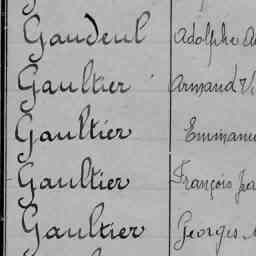 Gaudeul Adolphe
Gaultier Armand
Gaultier
Gaultier François
Gaultier Georges